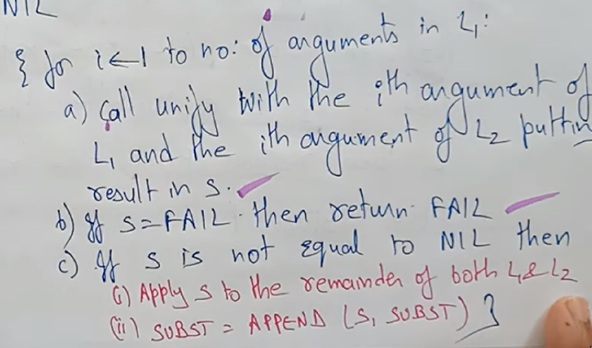 NIL
{ for i ← 1 to no: of arguments in L1:
a) Call unify with the ith argument of
L1 and the ith argument of L2 puttin
result in S.
b) If S = FAIL then return FAIL
c) If S is not equal to NIL then
(i) Apply S to the remainder of both L1 & L2
(ii) SUBST = APPEND (S, SUBST) }